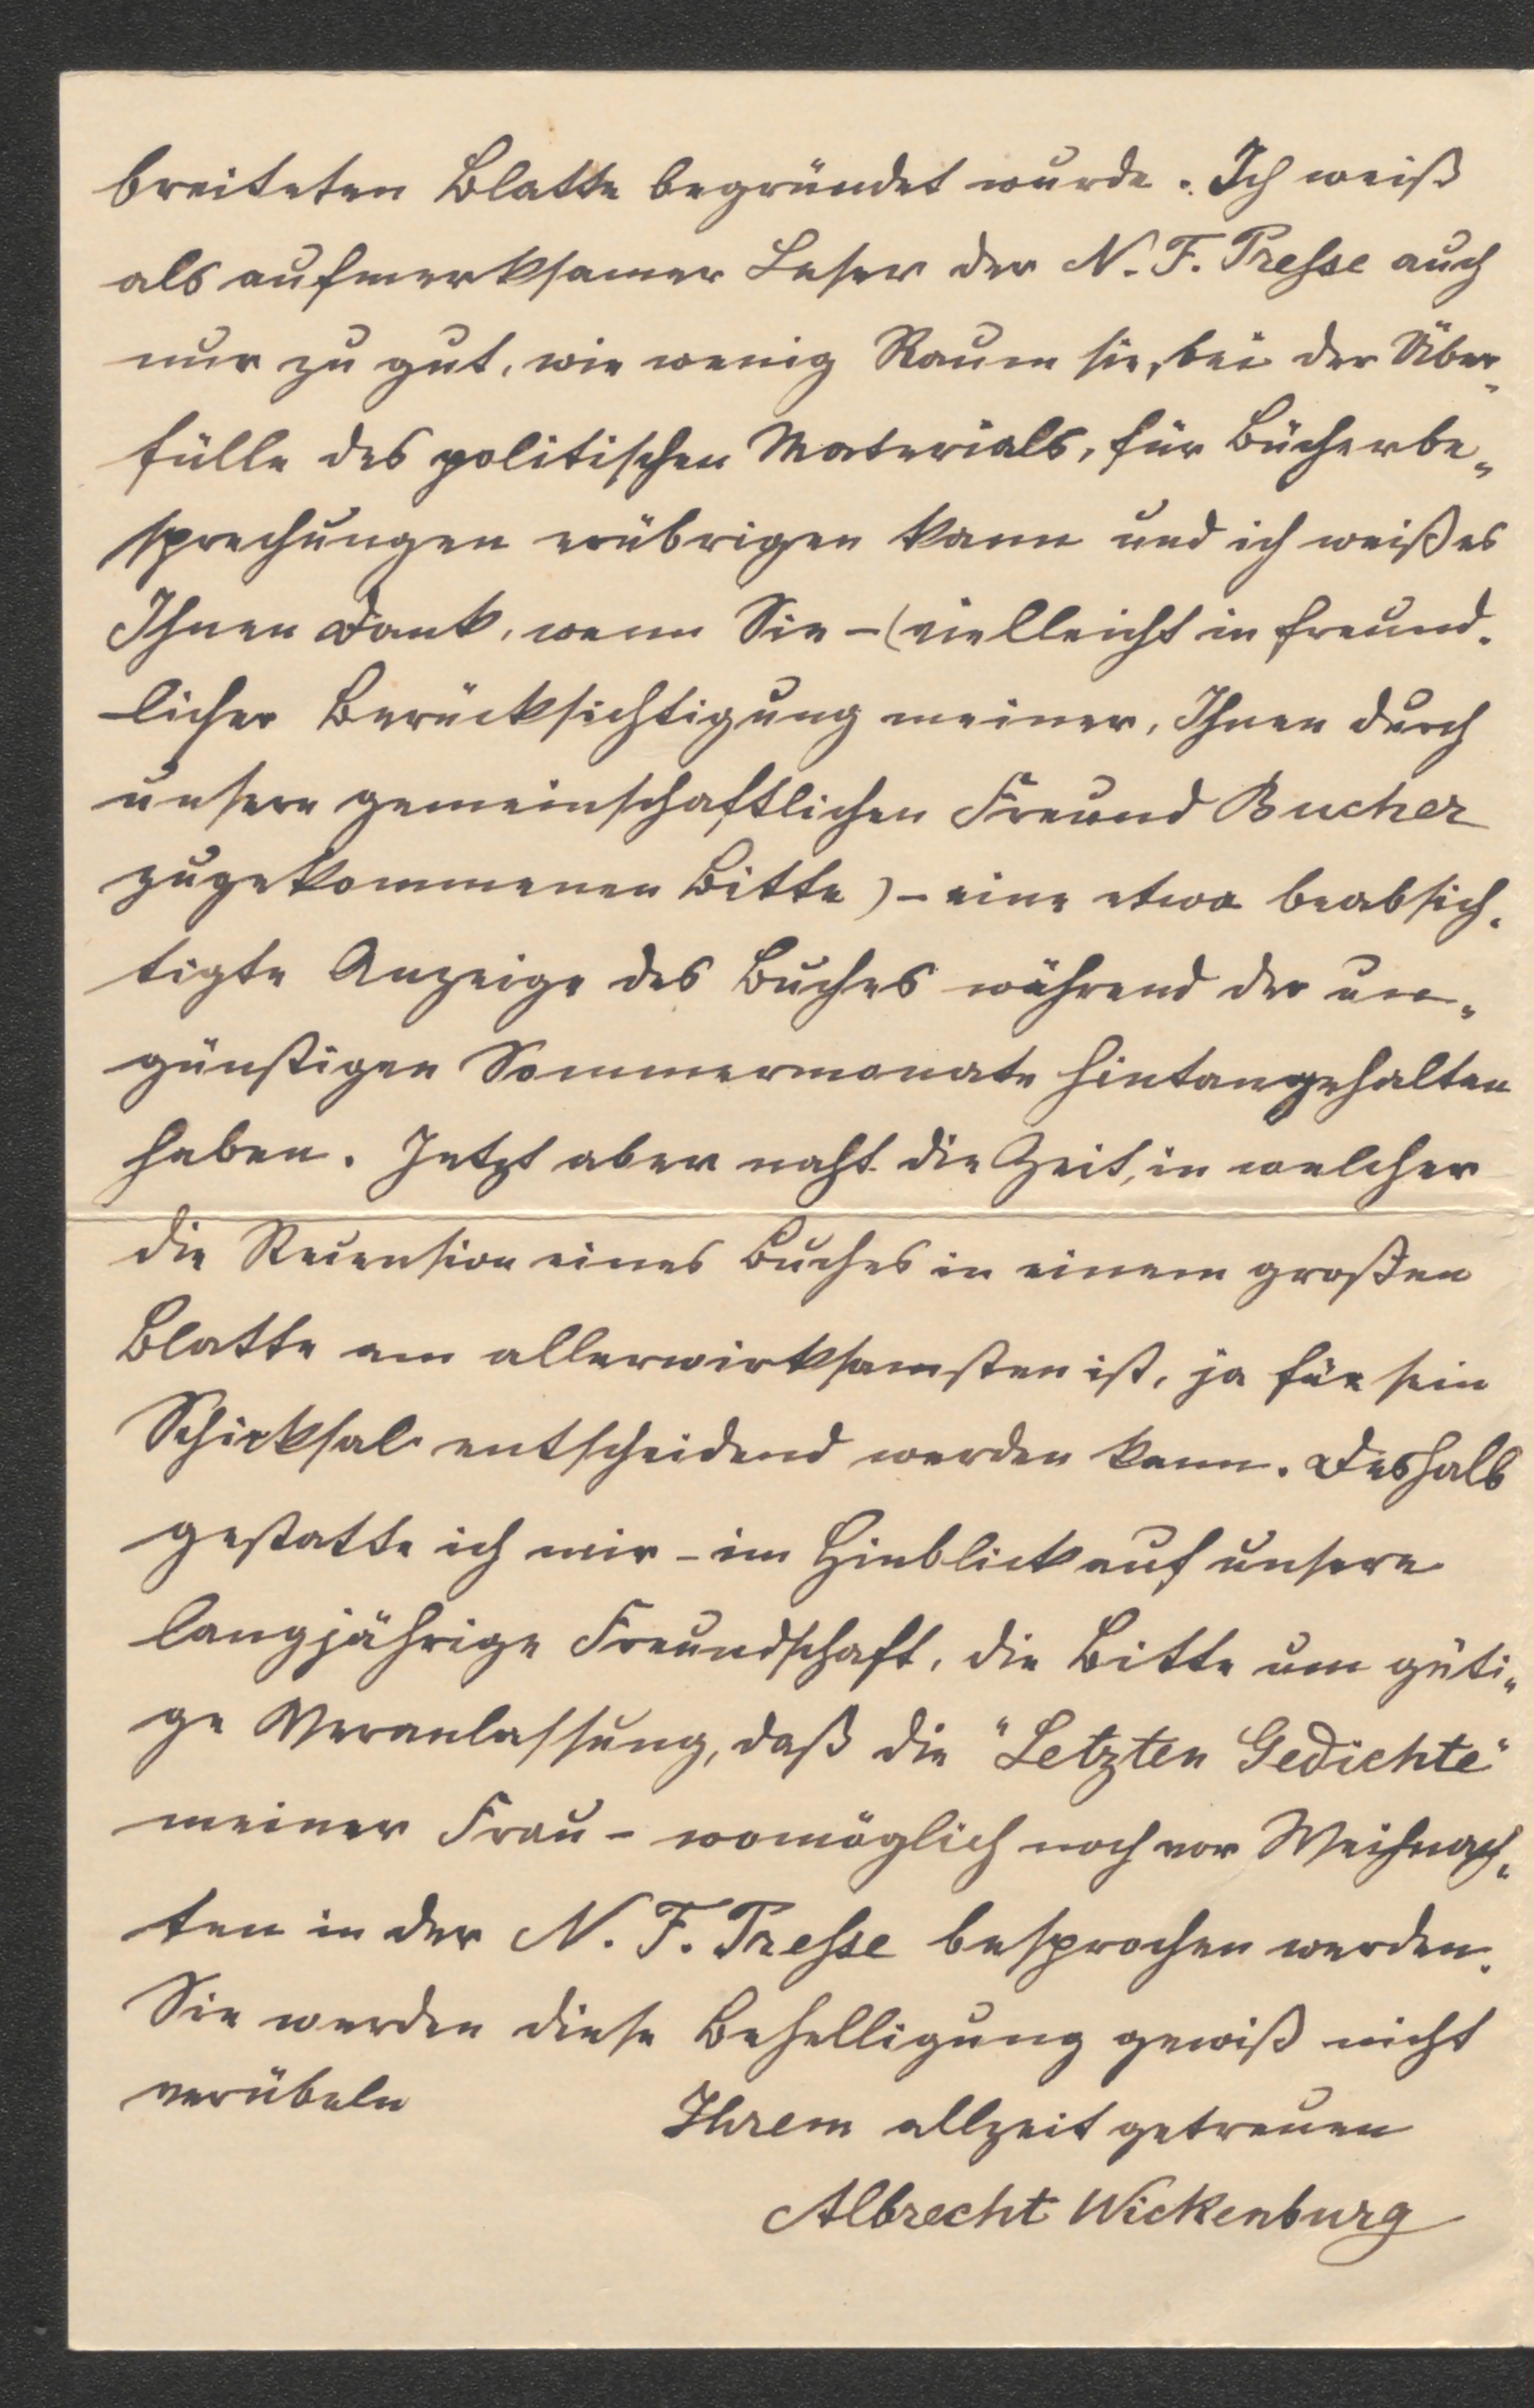 breiteten Blatte begründet wurde. Ich weiß
als aufmerksamer Leser der N. F. Presse auch
nur zu gut, wie wenig Raum sie, bei der Über-
fülle des politischen Materials, für Bücherbe-
sprechungen erübrigen kann und ich weiß es
Ihnen Dank, wenn Sie - (vielleicht in freund-
licher Berücksichtigung meiner, Ihnen durch
unsern gemeinschaftlichen Freund Bucher
zugekommenen Bitte) - eine etwa beabsich-
tigte Anzeige des Buches während der un-
günstigen Sommermonate hintangehalten
haben. Jetzt aber naht die Zeit, in welcher
die Recension eines Buches in einem großen
Blatte am allerwirksamsten ist, ja für sein
Schicksal entscheidend werden kann. Deshalb
gestatte ich mir - im Hinblick auf unsere
langjährige Freundschaft, die Bitte um güti-
ge Veranlassung, daß die "Letzten Gedichte"
meiner Frau - womöglich noch vor Weihnach-
ten in der N. F. Presse besprochen werden.
Sie werden diese Behelligung gewiß nicht
verübeln
Ihrem allzeit getreuen
Albrecht Wickenburg